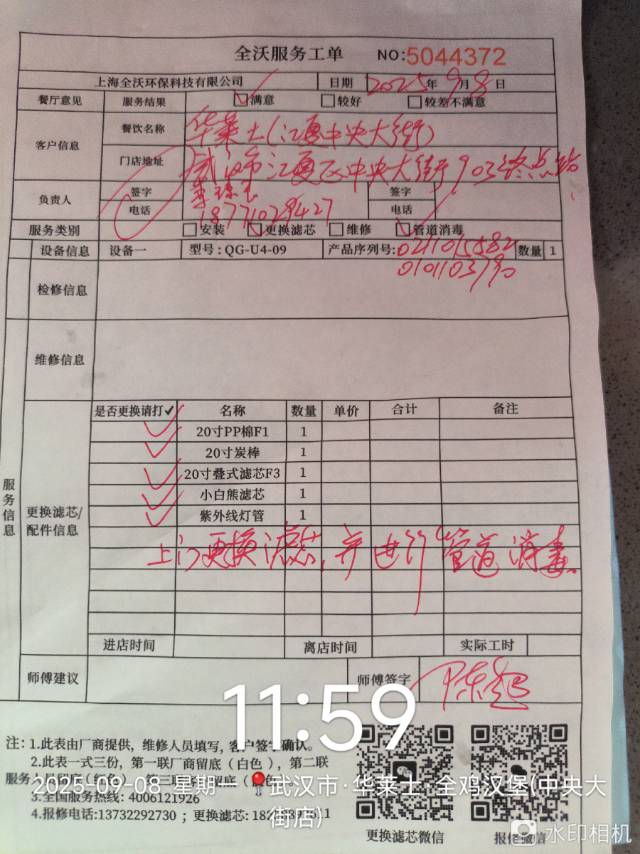 全沃服务工单 NO:5044372
上海全沃环保科技有限公司 日期 2025年9月8日
餐厅意见 服务结果 ☑满意 □较好 □较差不满意
客户信息 餐饮名称 华莱士(江夏中央大街)
门店地址 武汉市江夏区中央大街903终点站
负责人 签字 签字
电话 18771029427 电话
服务类别 □安装 ☑更换滤芯 □维修 ☑管道消毒
设备信息 设备一 型号:QG-U4-09 产品序列号: 0211015582 数量 1
0101103790
检修信息
维修信息
服务信息
更换滤芯/配件信息
是否更换请打✓ 名称 数量 单价 合计 备注
✓ 20寸PP棉F1 1
✓ 20寸炭棒 1
✓ 20寸叠式滤芯F3 1
✓ 小白熊滤芯 1
✓ 紫外线灯管 1
上门更换滤芯,并进行管道消毒。
进店时间 离店时间 实际工时
师傅建议 师傅签字 陈旭
11:59
注: 1.此表由厂商提供,维修人员填写,客户签字确认。
2.此表一式三份,第一联厂商留底(白色),第二联
服务
2025-09-08 星期一 武汉市·华莱士·全鸡汉堡(中央大
街店)
3.全国服务热线:4006121926
4.报修电话:13732292730;更换滤芯:
更换滤芯微信 报修微信
水印相机